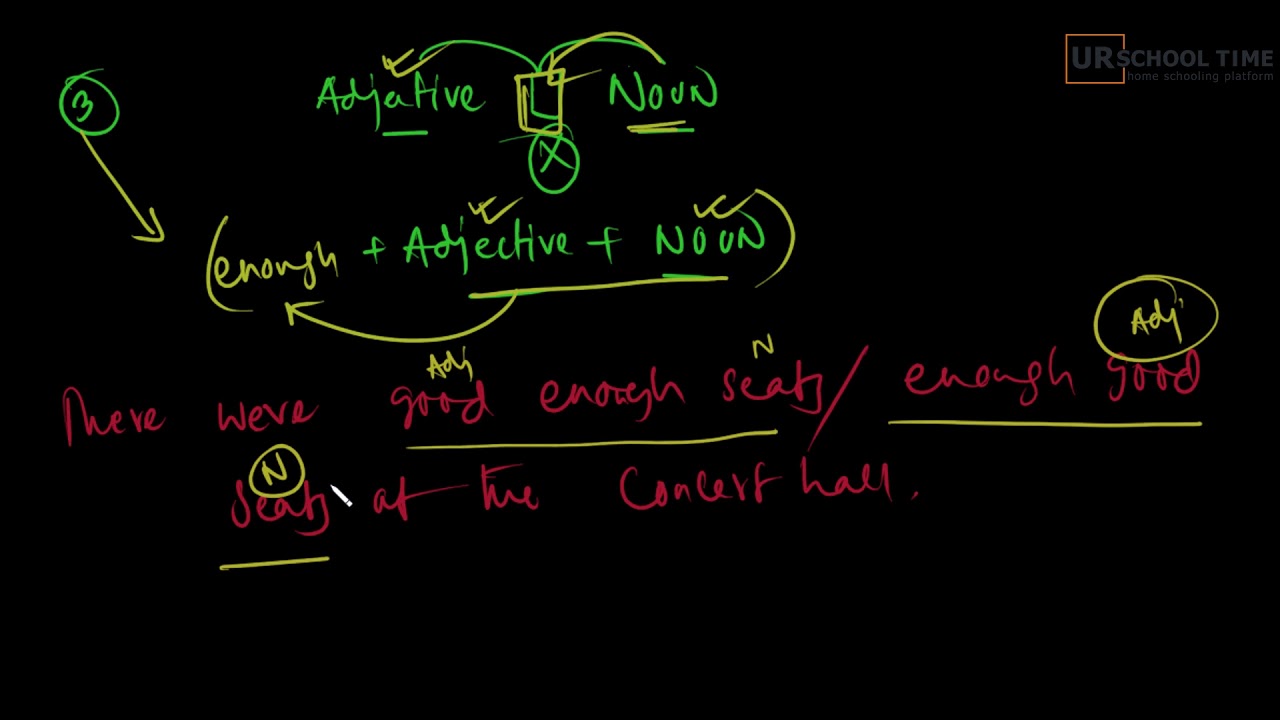 URSCHOOL TIME
home schooling platform
3
Adjective NOUN
X
(enough + Adjective + NOUN)
Adj N Adj
There were good enough seats / enough good
N
seats at the Concert hall.